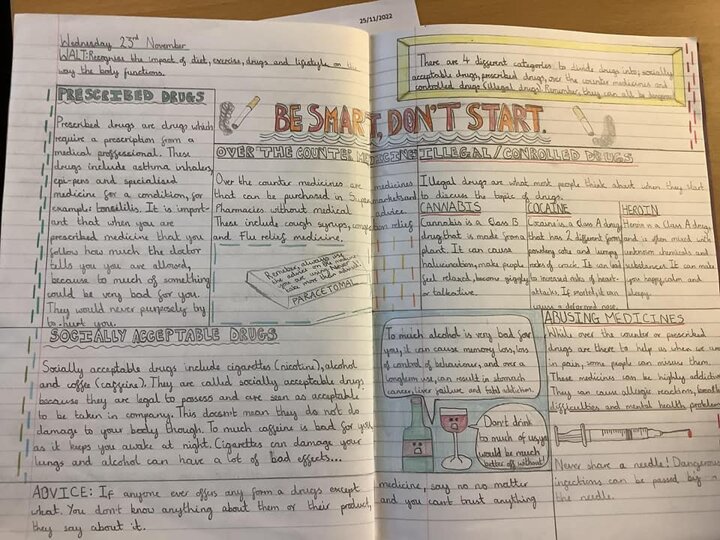 25/11/2022
Wednesday 23rd November
WALT: Recognise the impact of diet, exercise, drugs and lifestyle on the
way the body functions.
There are 4 different categories to divide drugs into; socially
acceptable drugs, prescribed drugs, over the counter medicines and
controlled drugs (illegal drugs). Remember, they can all be
BE SMART, DON'T START.
PRESCRIBED DRUGS
Prescribed drugs are drugs which
require a prescription from a
medical proffessional. These
drugs include asthma inhalers,
epi-pens and specialised
medicine for a condition, for
example: tonsilitis. It is import-
ant that when you are
prescribed medicine that you
follow how much the doctor
tells you you are allowed,
because to much of something
could be very bad for you.
They would never purposely try
to hurt you.
OVER THE COUNTER MEDICINES
Over the counter medicines are medicines
that can be purchased in Supermarkets and
Pharmacies without medical advice.
These include cough syrups, relief
and Flu relief medicine.
Remember, always
the advice on the
you are using. Never
take more than advised!
PARACETOMAL
ILLEGAL/CONROLLED DRUGS
Illegal drugs are what most people think about when they start
to discuss the topic of drugs.
CANNABIS
Cannabis is a Class B
drug that is made from a
plant. It can cause
halucinations, make people
feel relaxed, become giggly
or talkative.
COCAINE
Cocaine is a Class A drug
that has 2 different forms
powdery coke and lumpy
rocks of crack. It can lead
to increased risks of heart-
attacks. If snorted, it can
cause a deformed nose.
HEROIN
Heroin a Class A drug
and is often mixed with
unknown chemicals and
substances. It can make
you happy, calm and
sleepy.
SOCIALLY ACCEPTABLE DRUGS
Socially acceptable drugs include cigarettes (nicotine), alcohol
and coffee (caffeine). They are called socially acceptable drugs
because they are legal to possess and are seen as acceptable
to be taken in company. This doesn't mean they do not do
damage to your body though. To much caffeine is bad for you
as it keeps you awake at night. Cigarettes can damage your
lungs and alcohol can have a lot of bad effects...
To much alcohol is very bad for
you, it can cause memory loss, loss
of control of behaviour, and over a
longterm use, can result in stomach
cancer, liver failure and fatal addiction.
Don't drink
to much of us, you
would be much
better off without!
ABUSING MEDICINES
While over the counter or prescribed
drugs are there to help us when we are
in pain, some people can misuse them.
These medicines can be highly addictive.
They can cause allergic reactions, breathing
difficulties and mental health problems
Never share a needle! Dangerous
infections can be passed
the needle.
ADVICE: If anyone ever offers any form a drugs except medicine, say no no matter
what. You don't know anything about them or their product, and you can't trust anything
they say about it.